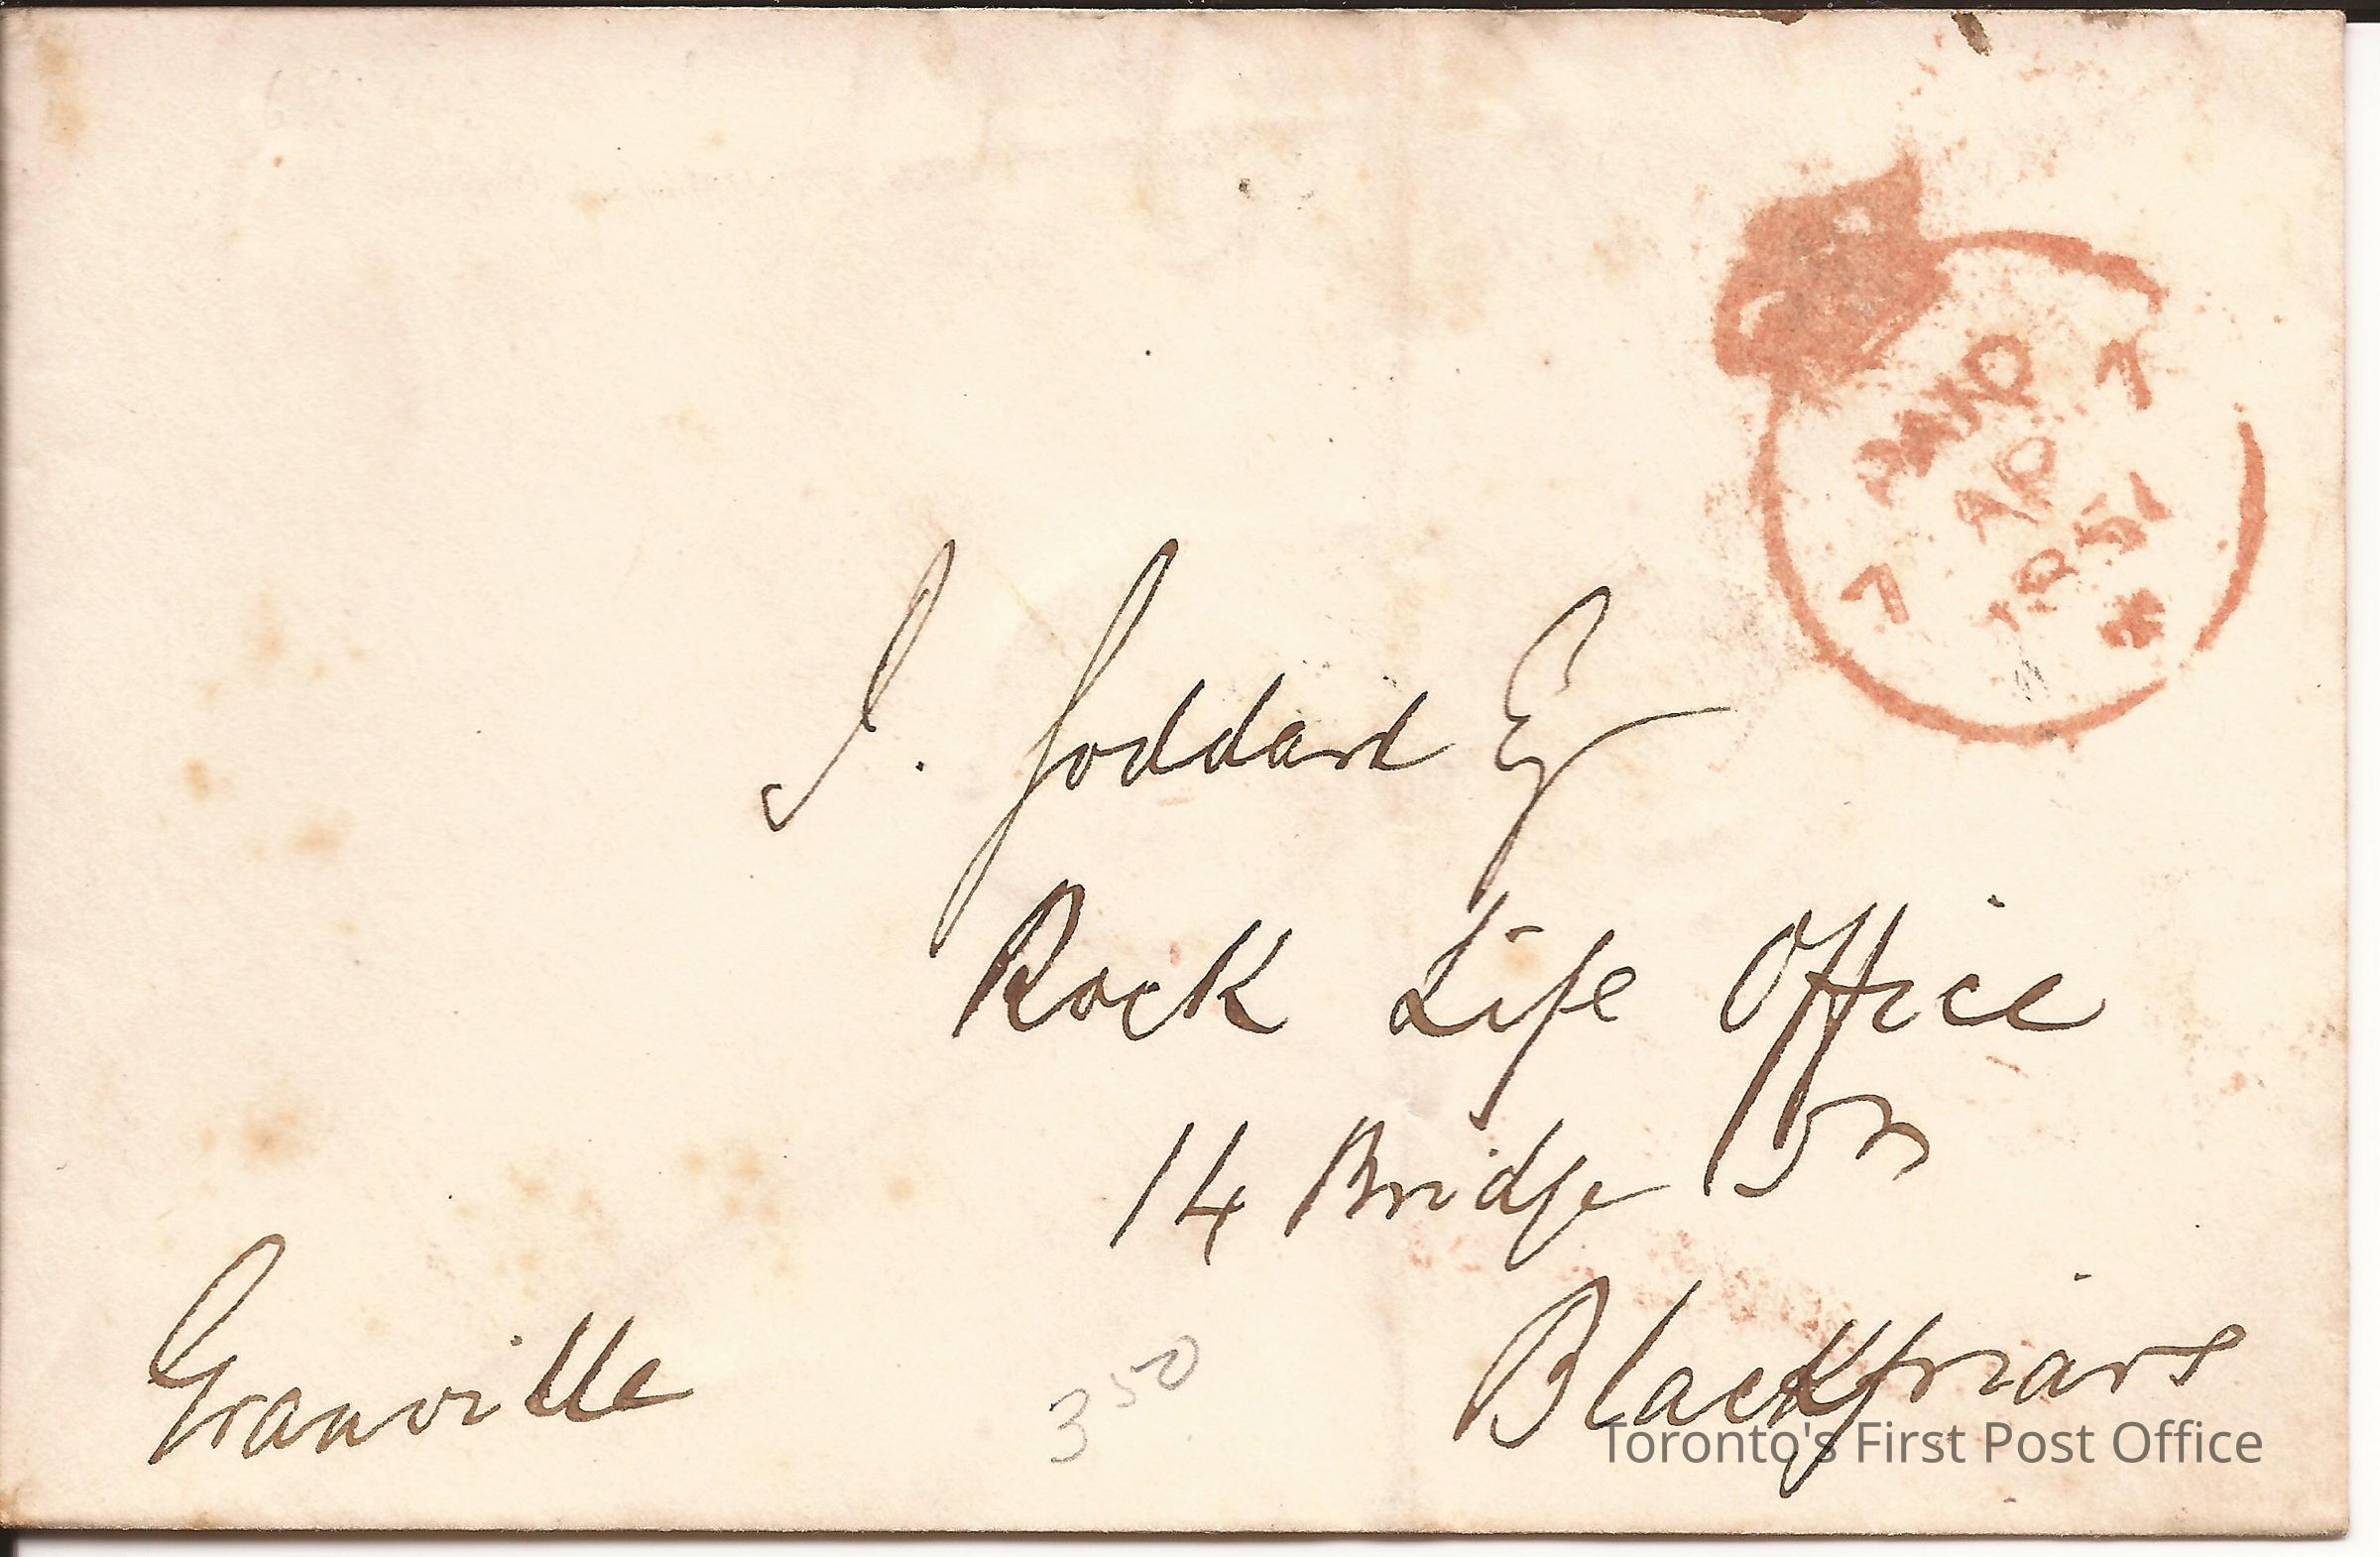 PAID
7 AP 7
1851
J. Goddard Esq
Rock Life Office
14 Bridge St
Blackfriars
Granville
350
Toronto's First Post Office